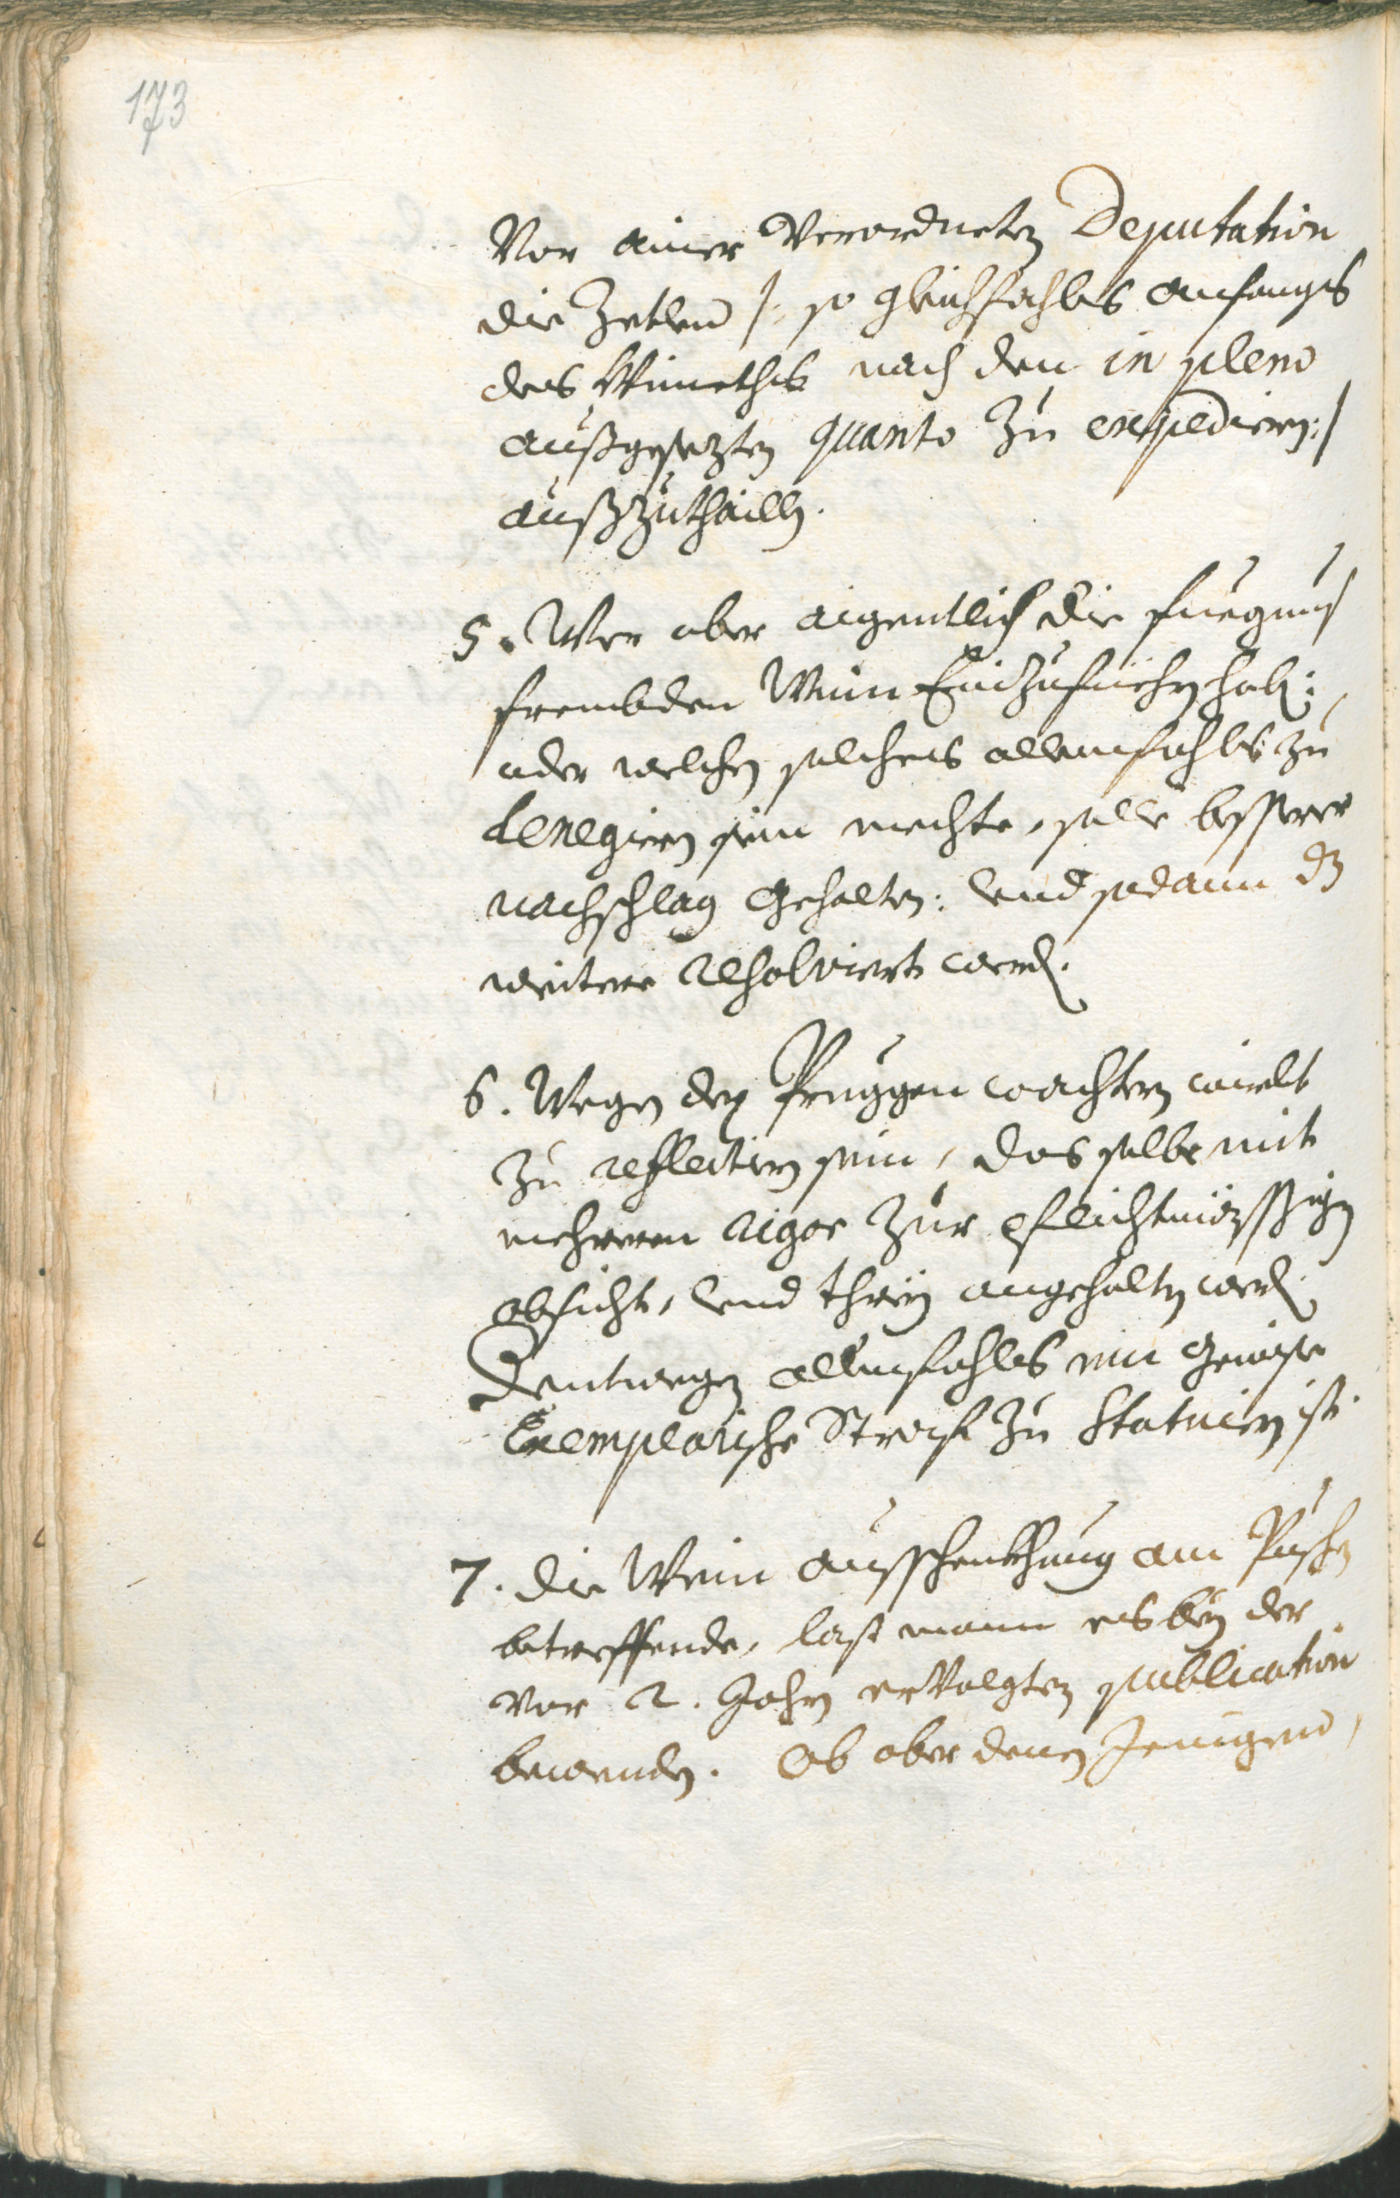 173
Vor ainer Verordneten Deputation
die Zetlen /: so gleichfahls anfangs
des Wimeths nach den in pleno
außgesezten quanto zu expediern :/
außzuthaillen.
5. Wer aber aigentlich die fuegnus
frembden Wein Einzufiehrn hab:
oder welchen solches allenfahls zu
denegiern sein mechte, solle besserer
nachschlag gehalten: und sodann dz
weitere resolviert werd.
6. Wegen der Pruggen wachtern wirdt
zu reflectiern sein, das selbe mit
mehreren rigor zur pflichtmässigen
obsicht, und threu angehalten werd.
Dentwegen allenfahls ein gewise
Exemplarische Straf zu Statuiern ist.
7. die Wein ausschenkhung am Puschen
betreffende, last mann es bey der
vor 2. Jahrn ervolgten publication
bewenden. Ob aber denen Jenigen,